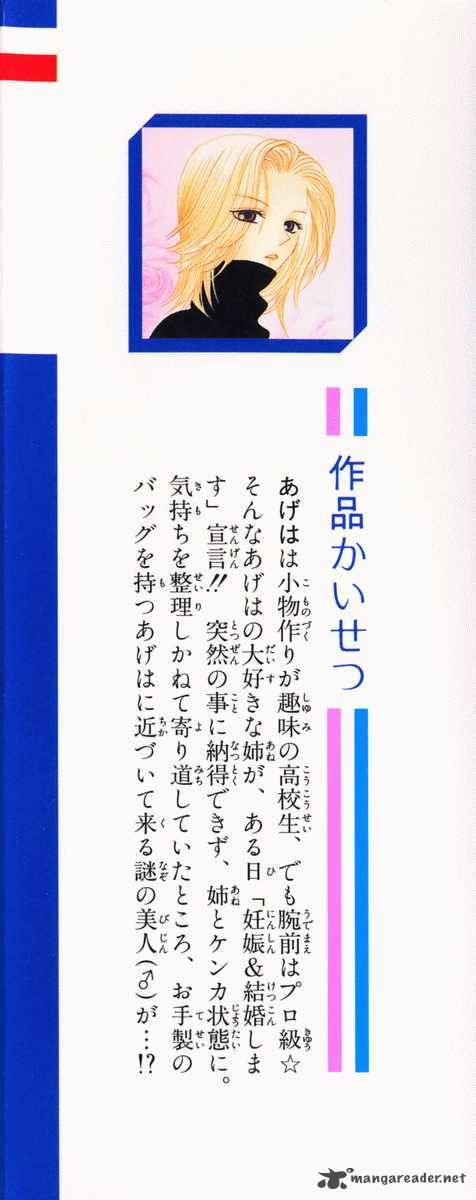 作品かいせつ
あげはは小物作りが趣味の高校生、でも腕前はプロ級☆
そんなあげはの大好きな姉が、ある日「妊娠&結婚しま
す」宣言!! 突然の事に納得できず、姉とケンカ状態に。
気持ちを整理しかねて寄り道していたところ、お手製の
バッグを持つあげはに近づいて来る謎の美人(♂)が…!?
mangareader.net